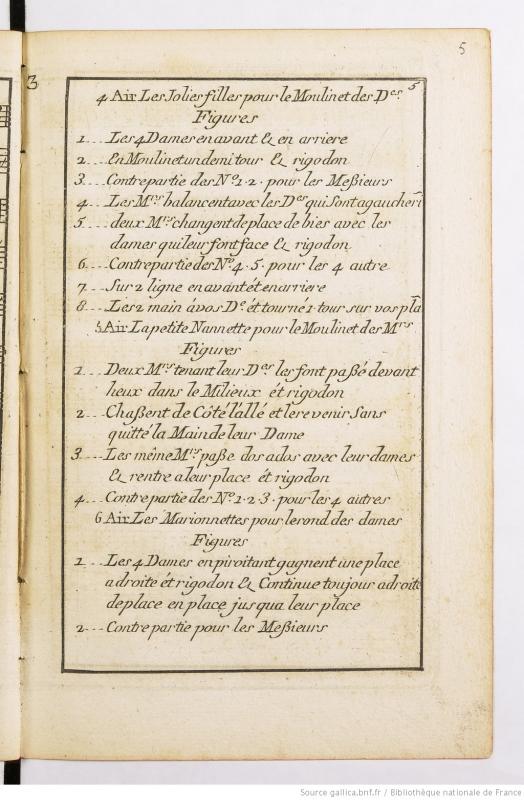 5
3
5
4 Air Les Jolies filles pour le Moulinet des D.es
Figures
1... Les 4 Dames en avant & en arriere
2... En Moulinet un demi tour & rigodon
3... Contre partie des N.o 1·2· pour les Meßieurs
4... Les M.rs balancent avec les D.es qui sont a gaucheri
5... deux M.rs changent de place de bies avec les
dames qui leur font face & rigodon
6... Contre partie des N.o 4·5· pour les 4 autre
7... Sur 2 ligne en avant ét en arriere
8... Les 2 main à vos D.e ét tourné 1· tour sur vos pla
5 Air La petite Nannette pour le Moulinet des M.rs
Figures
1... Deux M.rs tenant leur D.es les font paßé devant
heux dans le Milieux ét rigodon
2... Chaßent de Côté l'allé et le revenir Sans
quitté la Main de leur Dame
3... Les méine M.rs paße dos a dos avec leur dames
& rentre a leur place ét rigodon
4... Contre partie des N.o 1·2·3· pour les 4 autres
6 Air Les Marionnettes pour le rond des dames
Figures
1... Les 4 Dames en piroitant gagnent une place
a droite ét rigodon & Continue toujour a droite
de place en place jusqua leur place
2... Contre partie pour les Meßieurs
Source gallica.bnf.fr / Bibliothèque nationale de France